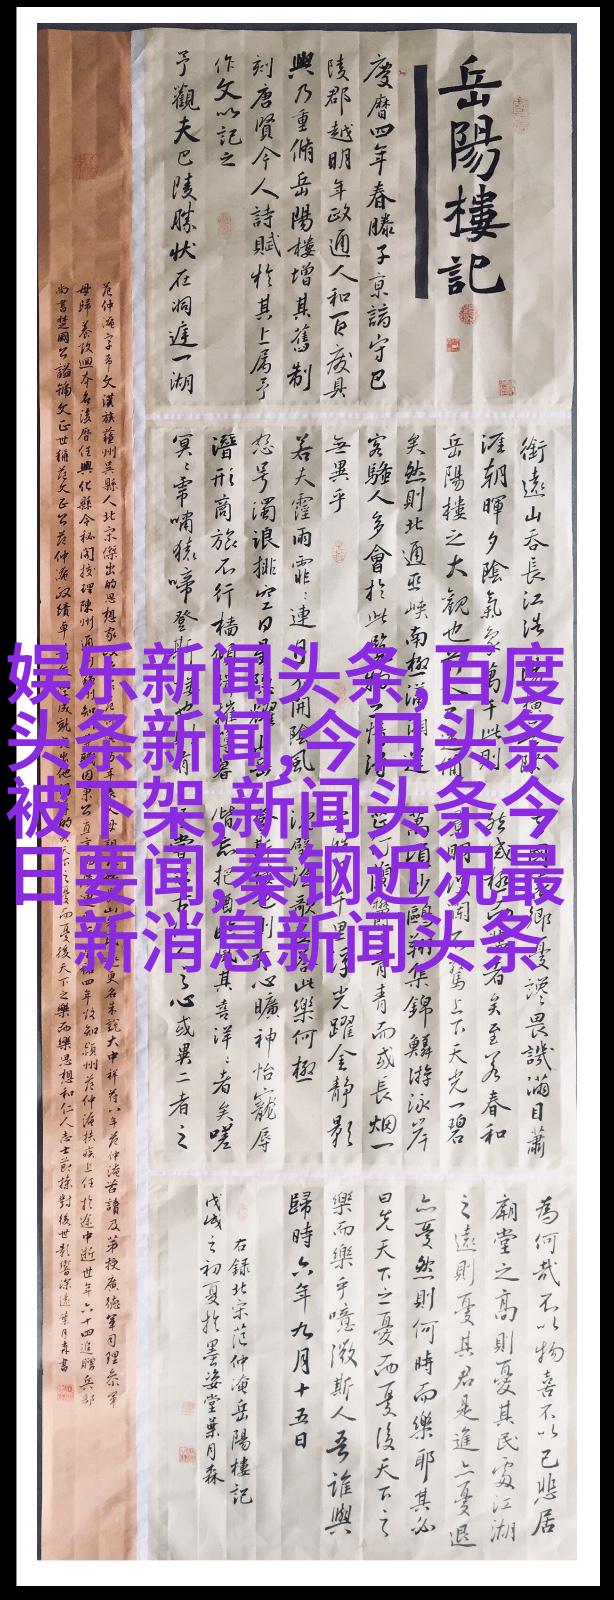 岳陽樓記
慶曆四年春滕子京謫守巴
陵郡越明年政通人和百廢具
興乃重脩岳陽樓增其舊制
刻唐賢今人詩賦於其上属予
作文以記之
予觀夫巴陵勝狀在洞庭一湖
銜遠山吞長江浩
涯朝暉夕陰氣象萬千此則
岳陽樓之大觀也
矣然則北通巫峽南極瀟湘遷
客騷人多會於此覽物之情得
無異乎
若夫霪雨霏〻連月不開陰風
怒号濁浪排空日星隱耀山岳
潛形商旅不行檣傾楫摧薄暮
冥〻虎嘯猿啼登斯樓也則有
國懷鄉憂讒畏譏滿目蕭
然感極而悲者矣至若春和
景明波瀾不驚上下天光一碧
萬頃沙鷗翔集錦鱗游泳岸
芷汀蘭鬱〻青青而或長烟一
皓月千里浮光躍金靜影
沉璧漁歌互答此樂何極
登斯樓也則有心曠神怡寵辱
偕忘把酒臨風其喜洋〻者矣嗟
予嘗求古仁人之心或異二者之
為何哉不以物喜不以己悲居
廟堂之高則憂其民處江湖
之遠則憂其君是進亦憂退
亦憂然則何時而樂耶其必
曰先天下之憂而憂後天下之
樂而樂乎噫微斯人吾誰與
歸時六年九月十五日
右錄北宋范仲淹岳陽樓記
戊戌之初夏於墨姿堂葉月森
范仲淹字希文漢族蘇州吳縣人北宋傑出的思想家政
母歸養改回本名後曆任興化縣令秘閣校理陳州通判
尚書楚國公謚號文正世稱范文正公范仲淹政績卓
娱乐新闻头条,百度
头条新闻,今日头条
被下架,新闻头条今
日要闻,秦钢近况最
新消息新闻头条